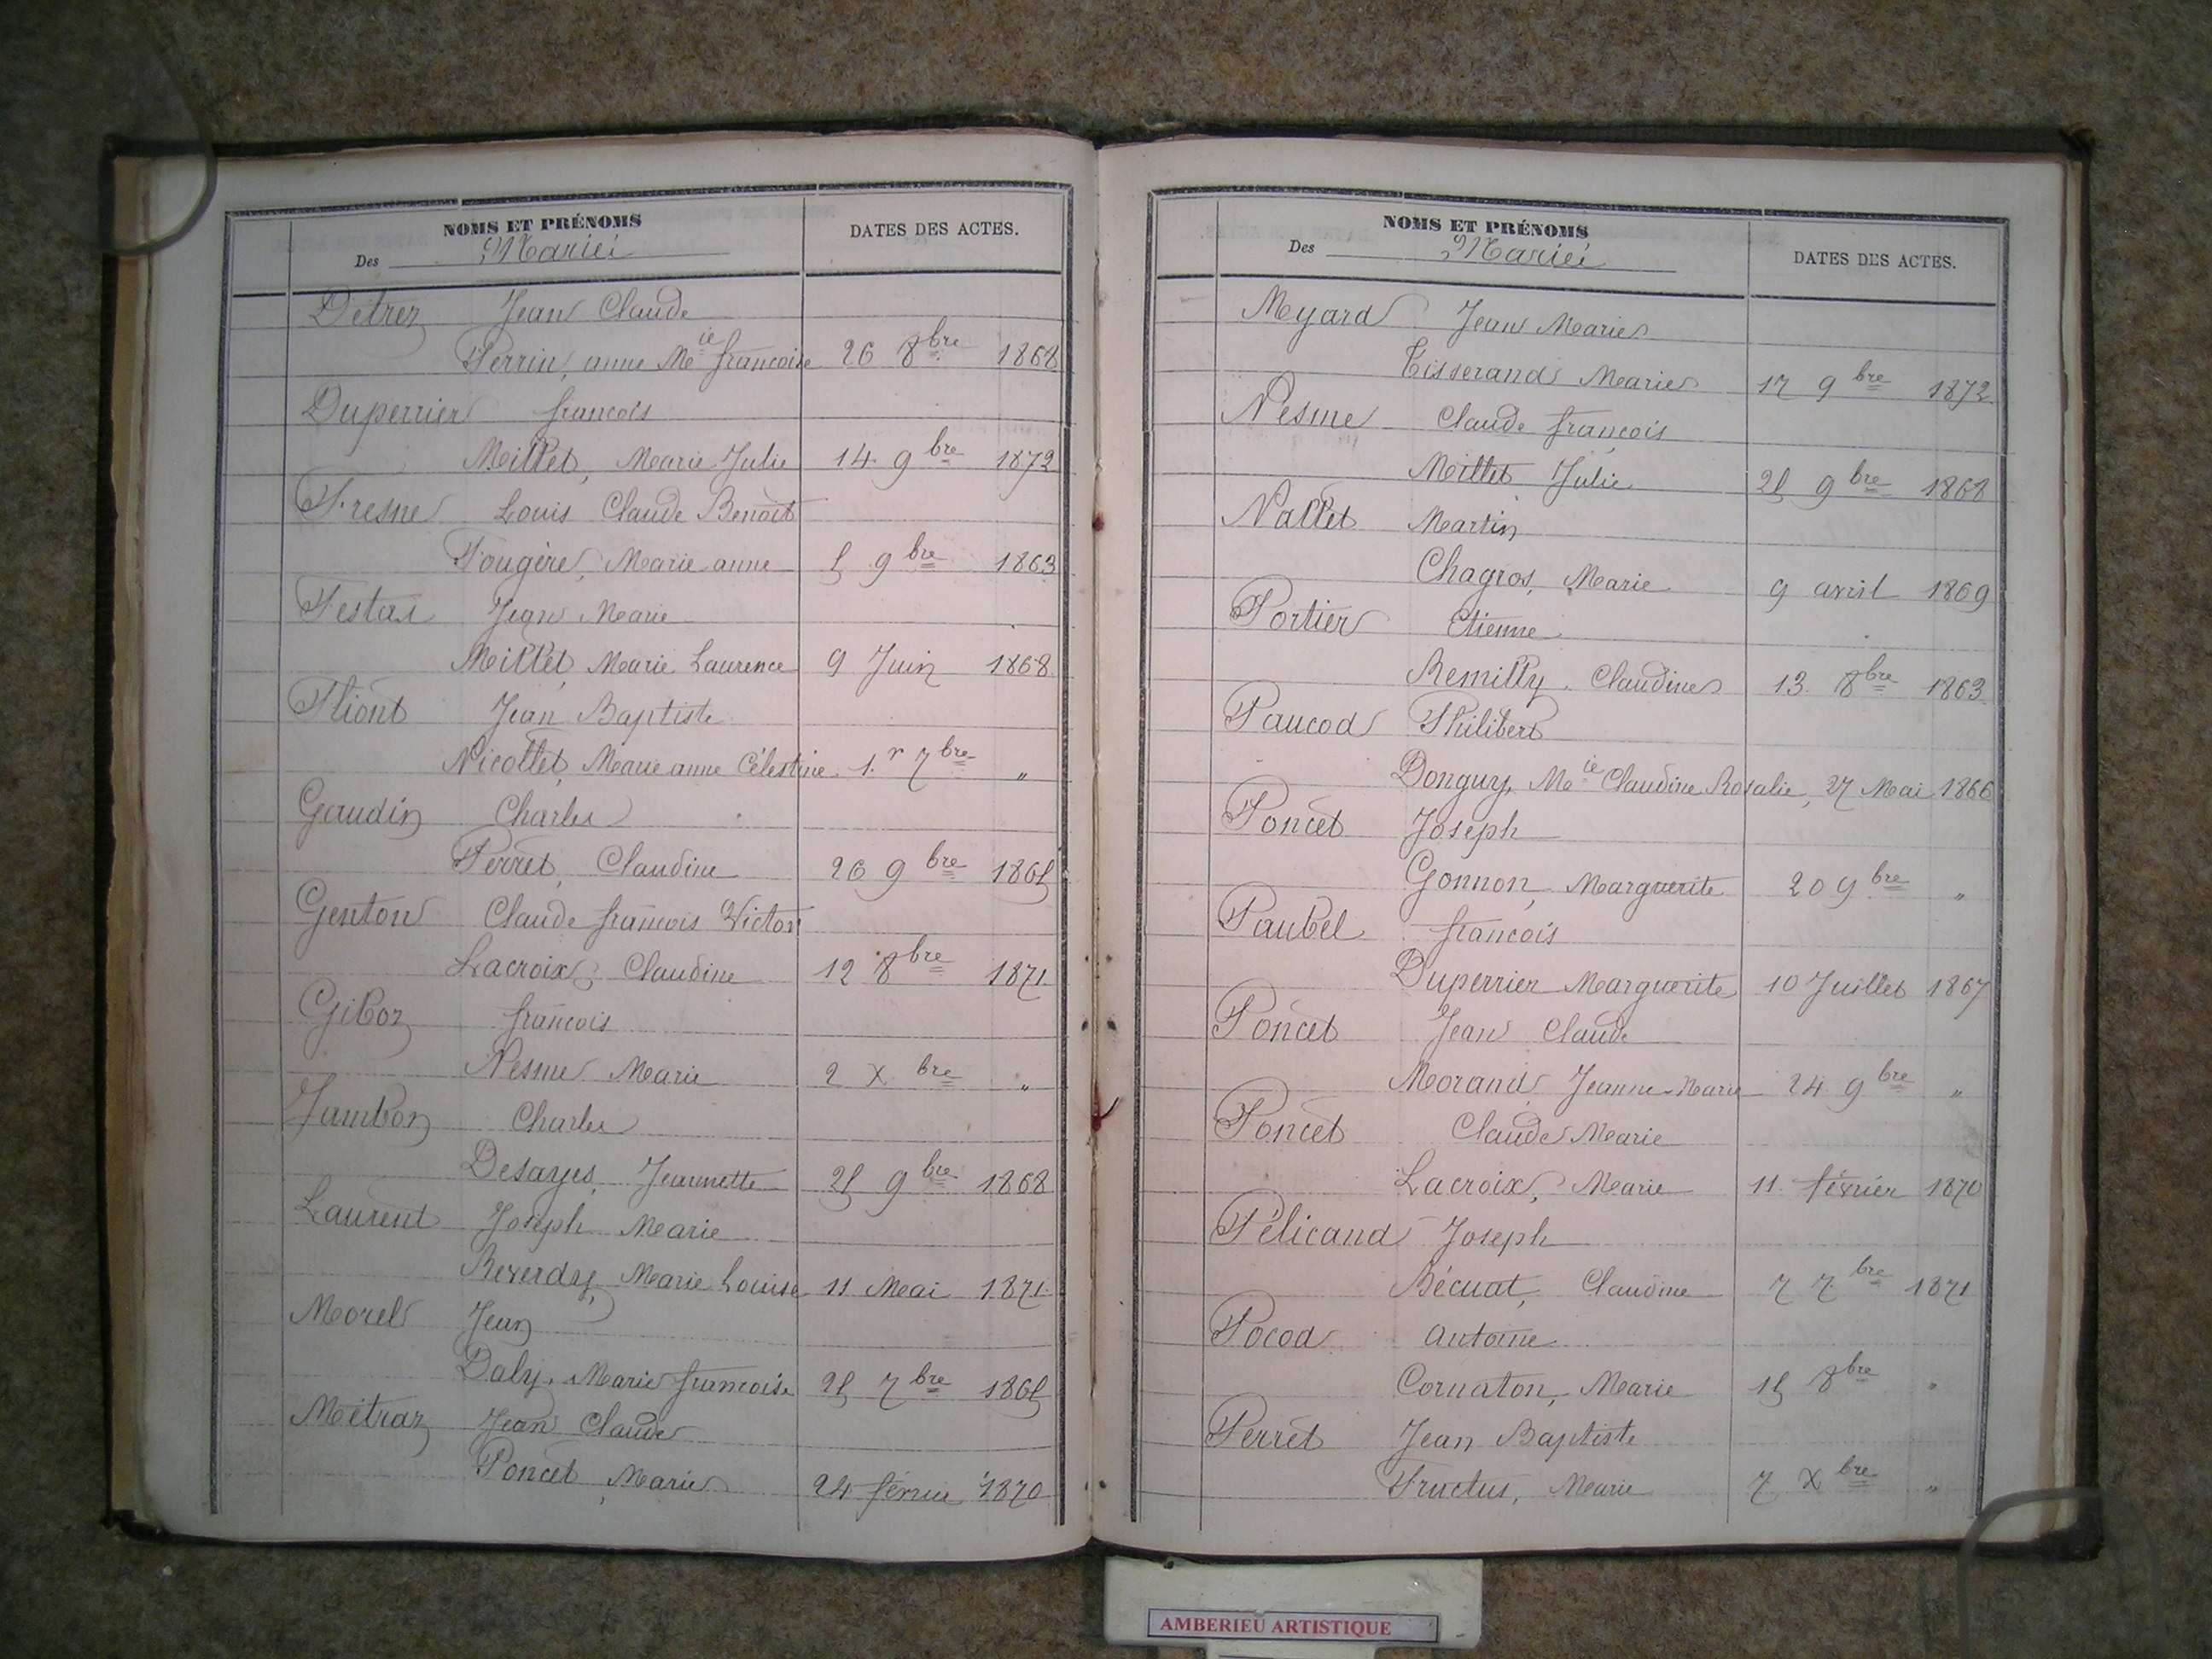 NOMS ET PRÉNOMS
Des Mariés
DATES DES ACTES.
Détrez Jean Claude
Perrin, anne Mie françoise 26 8bre 1868
Duperrier françois
Millet, Marie Julie 14 9bre 1872
Fresne Louis Claude Benoit
Fougère, Marie anne 5 9bre 1863
Festas Jean Marie
Millet, Marie Laurence 9 Juin 1868
Fliont Jean Baptiste
Nicollet, Marie anne Célestine 1.r 7bre "
Gaudin Charles
Perret, Claudine 26 9bre 1865
Genton Claude françois Victor
Lacroix, Claudine 12 8bre 1871
Giboz françois
Nesme Marie 2 Xbre "
Jambon Charles
Desayes, Jeannette 25 9bre 1868
Laurent Joseph Marie
Reverdy, Marie Louise 11 Mai 1871
Morel Jean
Daly, Marie françoise 25 7bre 1865
Métraz Jean Claude
Poncet, Marie 24 février 1870
NOMS ET PRÉNOMS
Des Mariés
DATES DES ACTES.
Myard Jean Marie
Tisserand Marie 17 9bre 1872
Nesme Claude françois
Millet Julie 25 9bre 1868
Nallet Martin
Chagros, Marie 9 avril 1869
Portier Etienne
Remilly, Claudine 13 8bre 1863
Paucod Philibert
Donguy, Mie Claudine Rosalie, 27 Mai 1866
Poncet Joseph
Gonnon, Marguerite 20 9bre "
Paubel françois
Duperrier Marguerite 10 Juillet 1867
Poncet Jean Claude
Morand Jeanne-Marie 24 9bre "
Poncet Claude Marie
Lacroix, Marie 11 février 1870
Pélicand Joseph
Bécuat, Claudine 7 7bre 1871
Pocod Antoine
Cornaton, Marie 15 8bre "
Perret Jean Baptiste
Fructus, Marie 7 Xbre "
AMBERIEU ARTISTIQUE